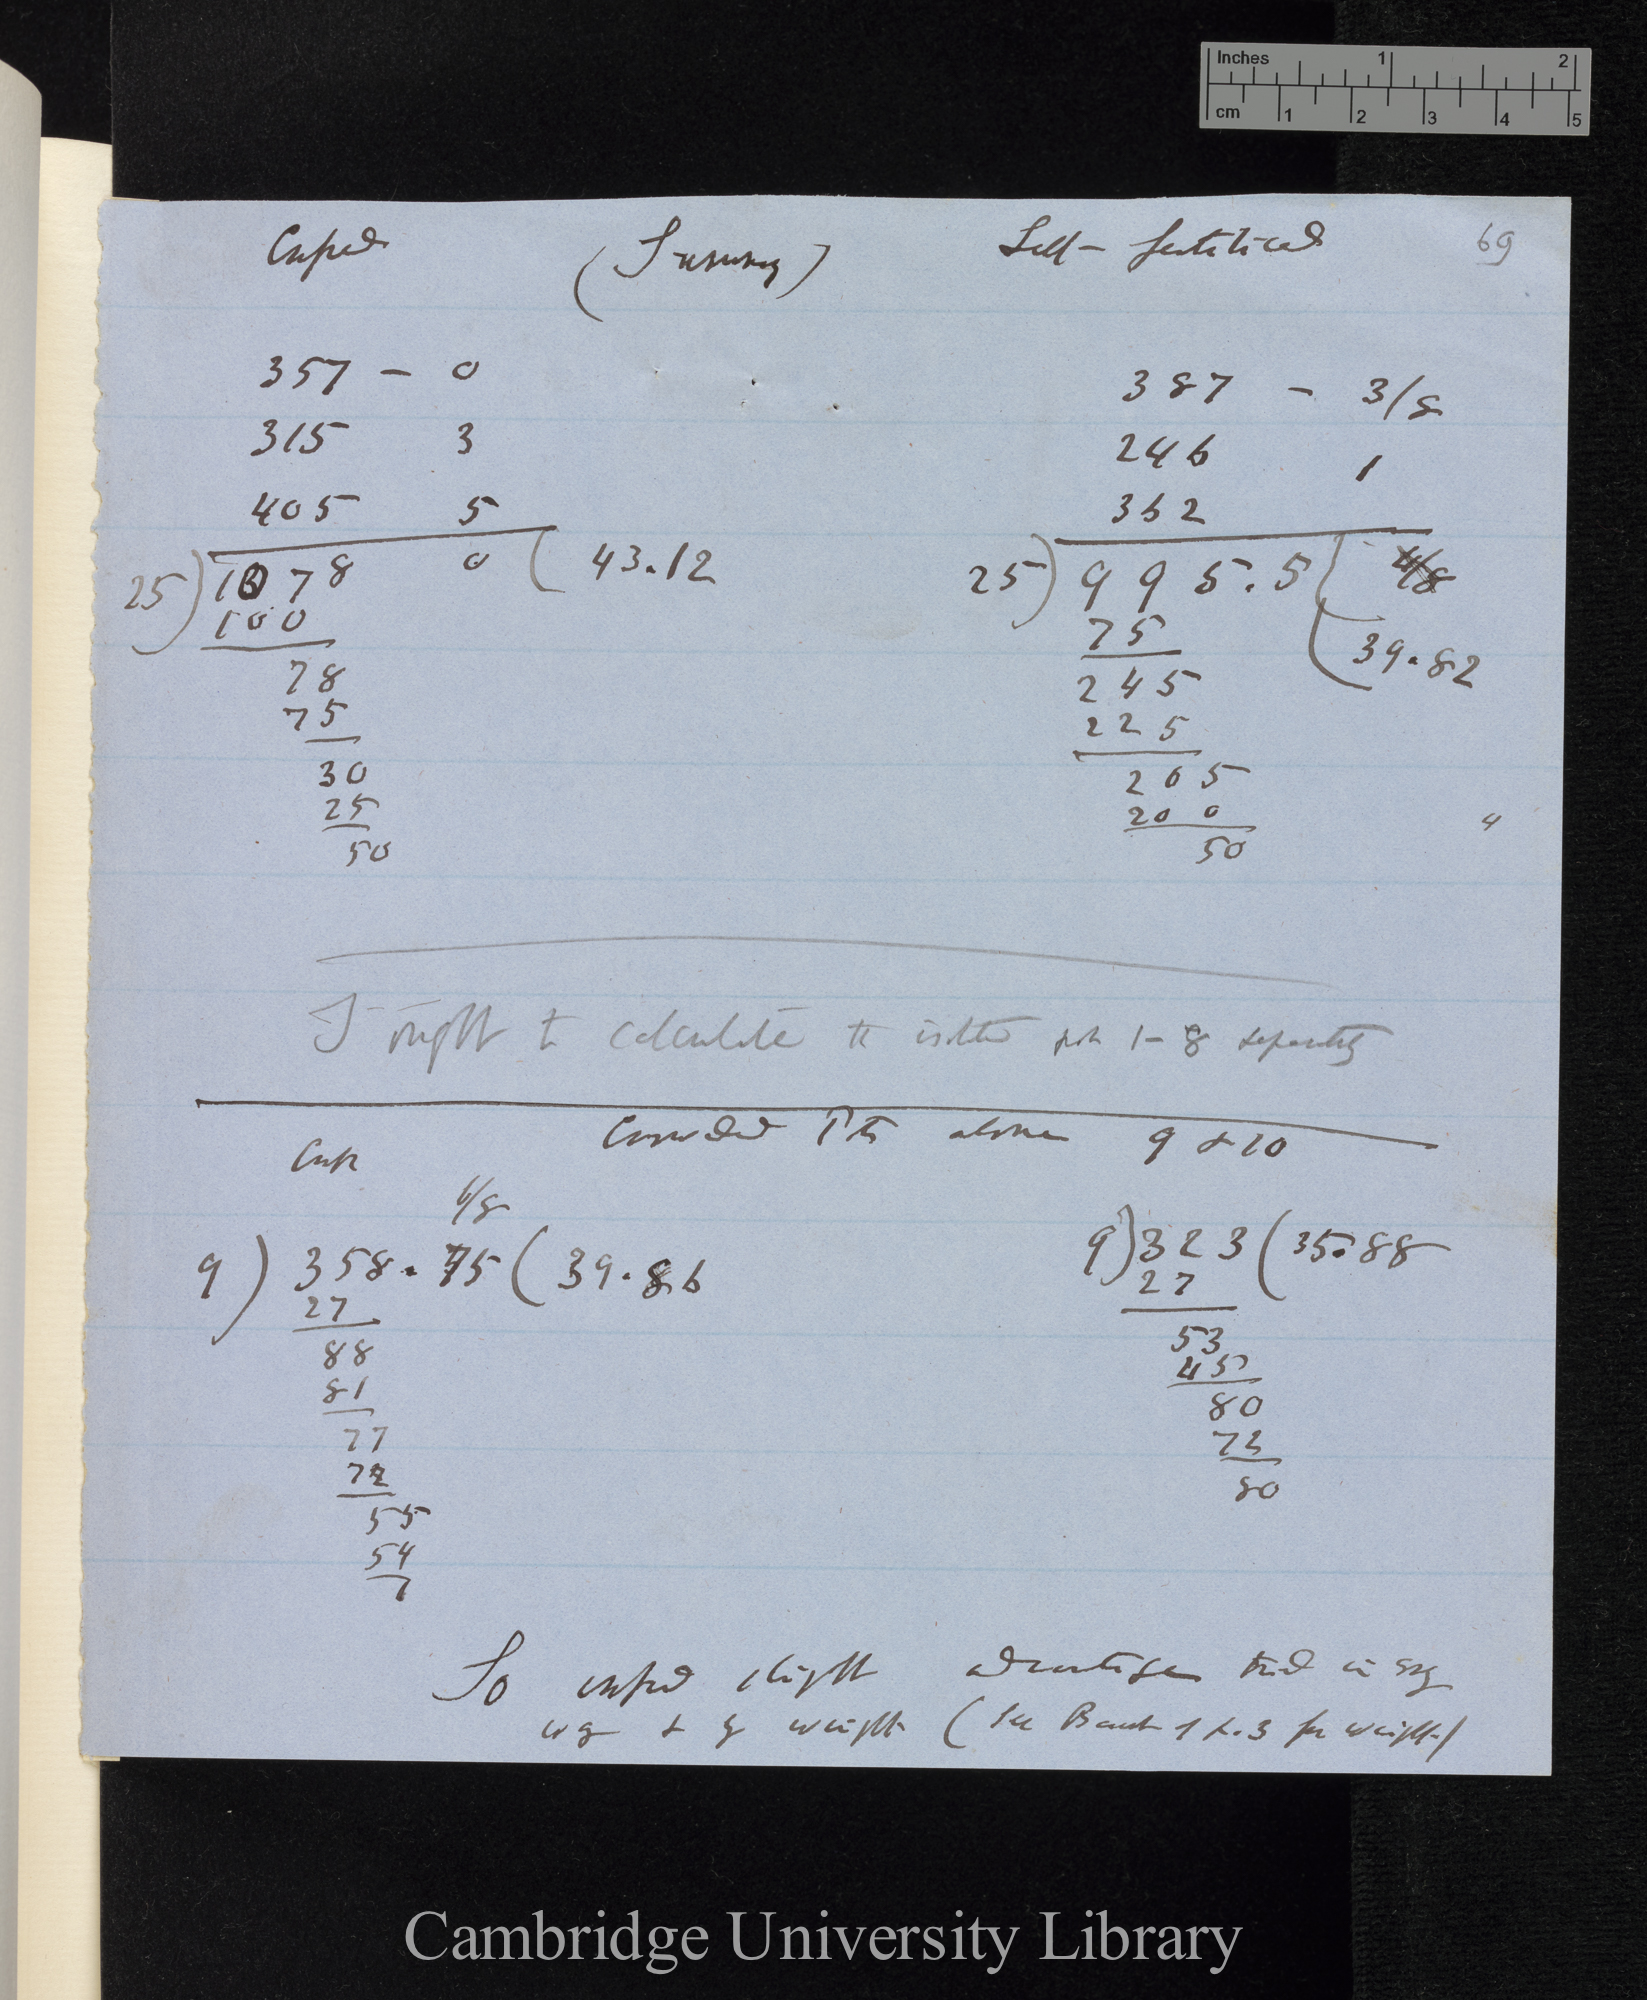 Inches 1 2
cm 1 2 3 4 5
Crossed (Summary) Self-fertilised 69
357 – 0
315 3
405 5
25) 1078 0 ( 43.12
100
78
75
30
25
50
387 – 3/8
246 1
362
25) 995.5 ( 4/8
( 39.82
75
245
225
205
200
50
4
I ought to calculate the isolated pots 1–8 separately
Crowded Pots alone 9 & 10
Cross
6/8
9) 358.75 ( 39.86
27
88
81
77
72
55
54
1
9) 323 ( 35.88
27
53
45
80
72
80
So crossed slight advantage tried in every
way & by weight (See Back of p. 3 for weights)
Cambridge University Library